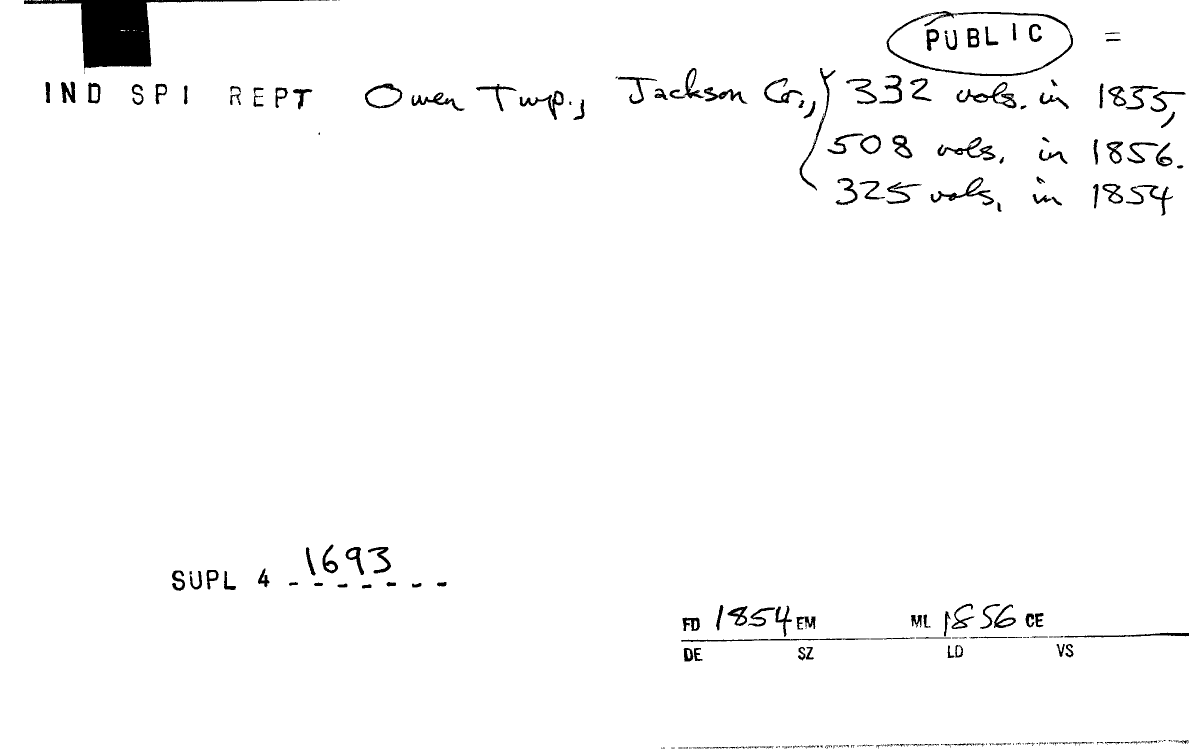 PUBLIC =
IND SPI REPT Owen Twp., Jackson Co., 332 vols. in 1855,
508 vols. in 1856.
325 vols. in 1854
SUPL 4 1693
FD 1854 EM ML 1856 CE
DE SZ LD VS